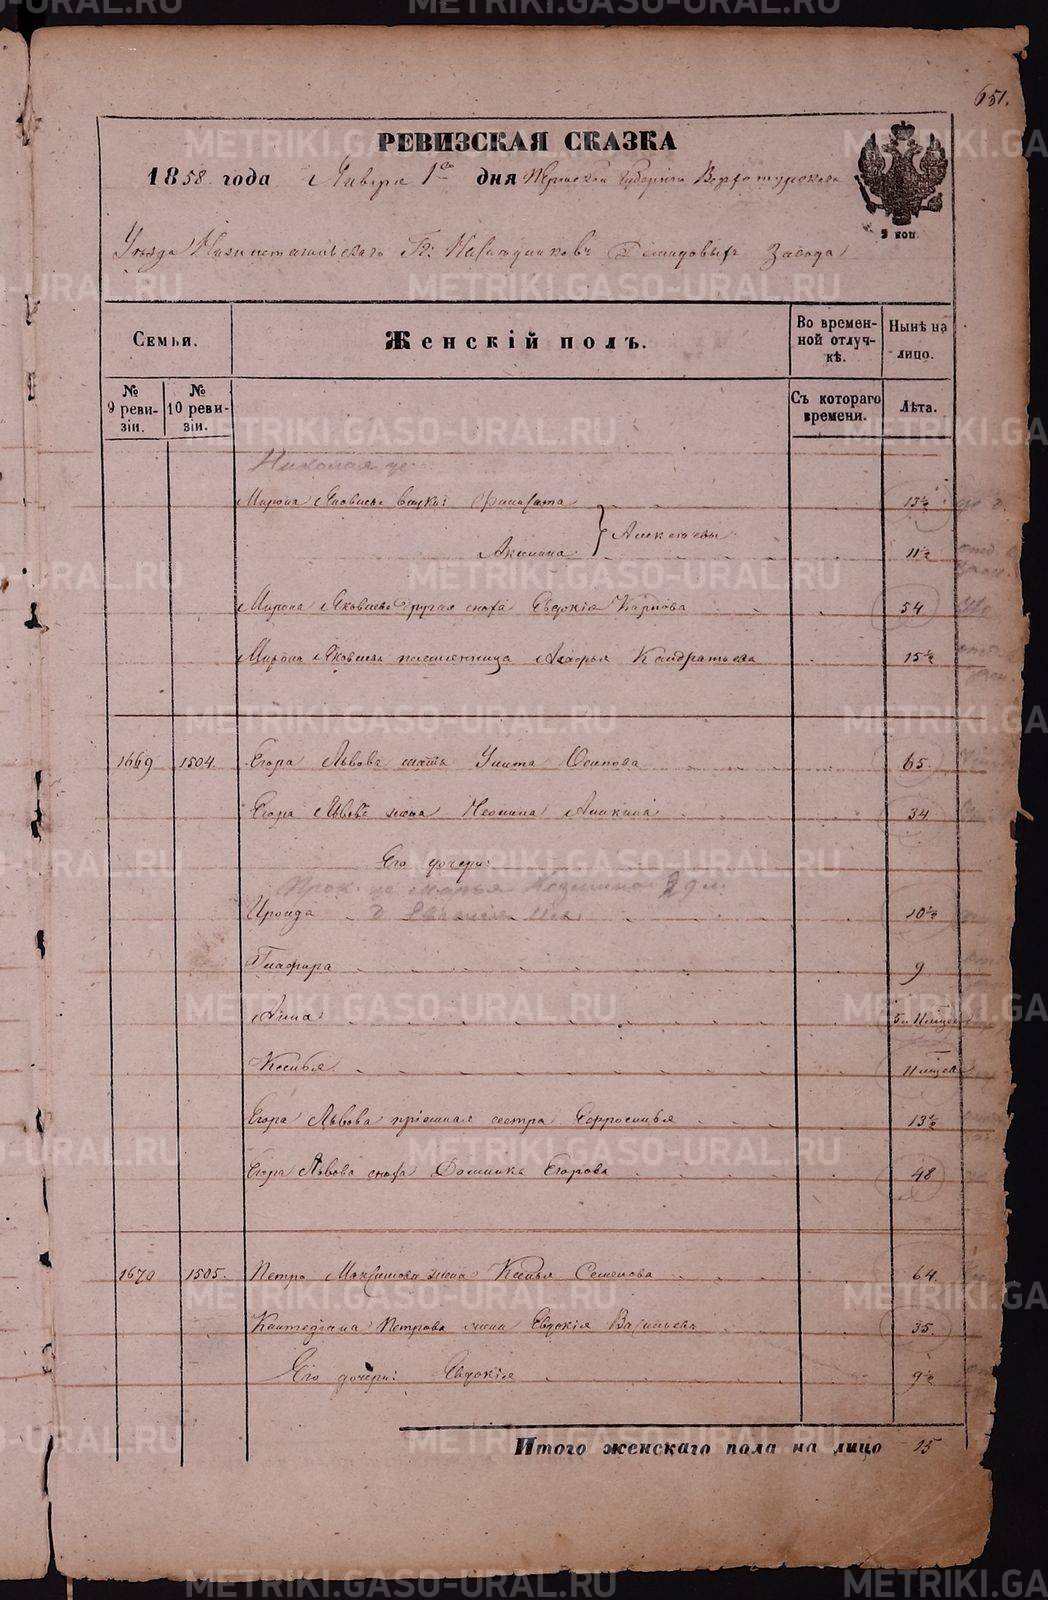 651.
РЕВИЗСКАЯ СКАЗКА
1858. года Января 1го дня Пермской Губернии Верхотурскаго
Уѣзда Нижнетагильскаго Гг. Наслѣдниковъ Демидовыхъ Завода
5 коп
Семьи.
Женскій полъ.
Во времен-
ной отлуч-
кѣ.
Нынѣ на
лицо.
№
9 реви-
зіи.
№
10 реви-
зіи.
Съ котораго
времени.
Лѣта.
Мирона Яковлева внуки: Филисата 13½
Акилина } Алексѣевы 11½
Мирона Яковлева другая сноха Евдокія Карпова 54
Мирона Яковлева племянница Агафья Кондратьева 15½
1669 1504. Егора Львова мать Улита Осипова 65.
Егора Львова жена Неонила Аникина 34
Его дочери:
Ираида 10½
Глафира 9
Анна 5 и 11 мѣсяц
Ксенья 11 мѣсяц
Егора Львова пріемная сестра Ефросинья 13½
Егора Львова сноха Домника Егорова 48
1670 1505. Петра Максимова жена Ксенья Семенова 64.
Петрова жена Евдокія Васильева 35.
Его дочери: Евдокія 9½
Итого женскаго пола на лицо 15
METRIKI.GASO-URAL.RU